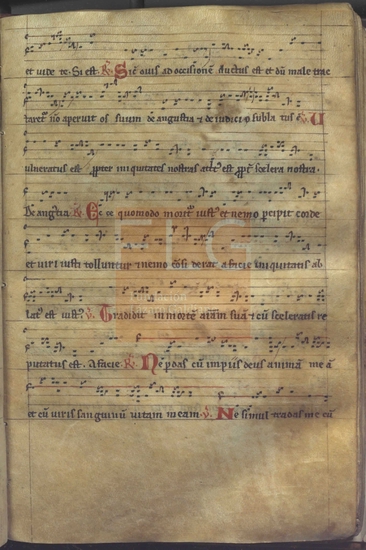 et vide te. Si est. R. Sic ovis ad occisionē ductus est et dū male trac
taret' nō aperuit os suum de angustia & de iudicio subla tus ē. V
ulneratus est ppter iniquitates nostras attrit' est ppt' scelera nostra.
De angustia. R. Ecce quomodo morit' iust' et nemo pcipit corde
et viri iusti tolluntur & nemo cōsiderat. a facie iniquitatis ab
lat' est iust'. V. Tradidit in mortē aīam suā & cū sceleratis re
putatus est. A facie. R. Ne pdas cū impiis deus animā meā
et cū viris sanguinū vitam meam. V. Ne simul tradas me cū